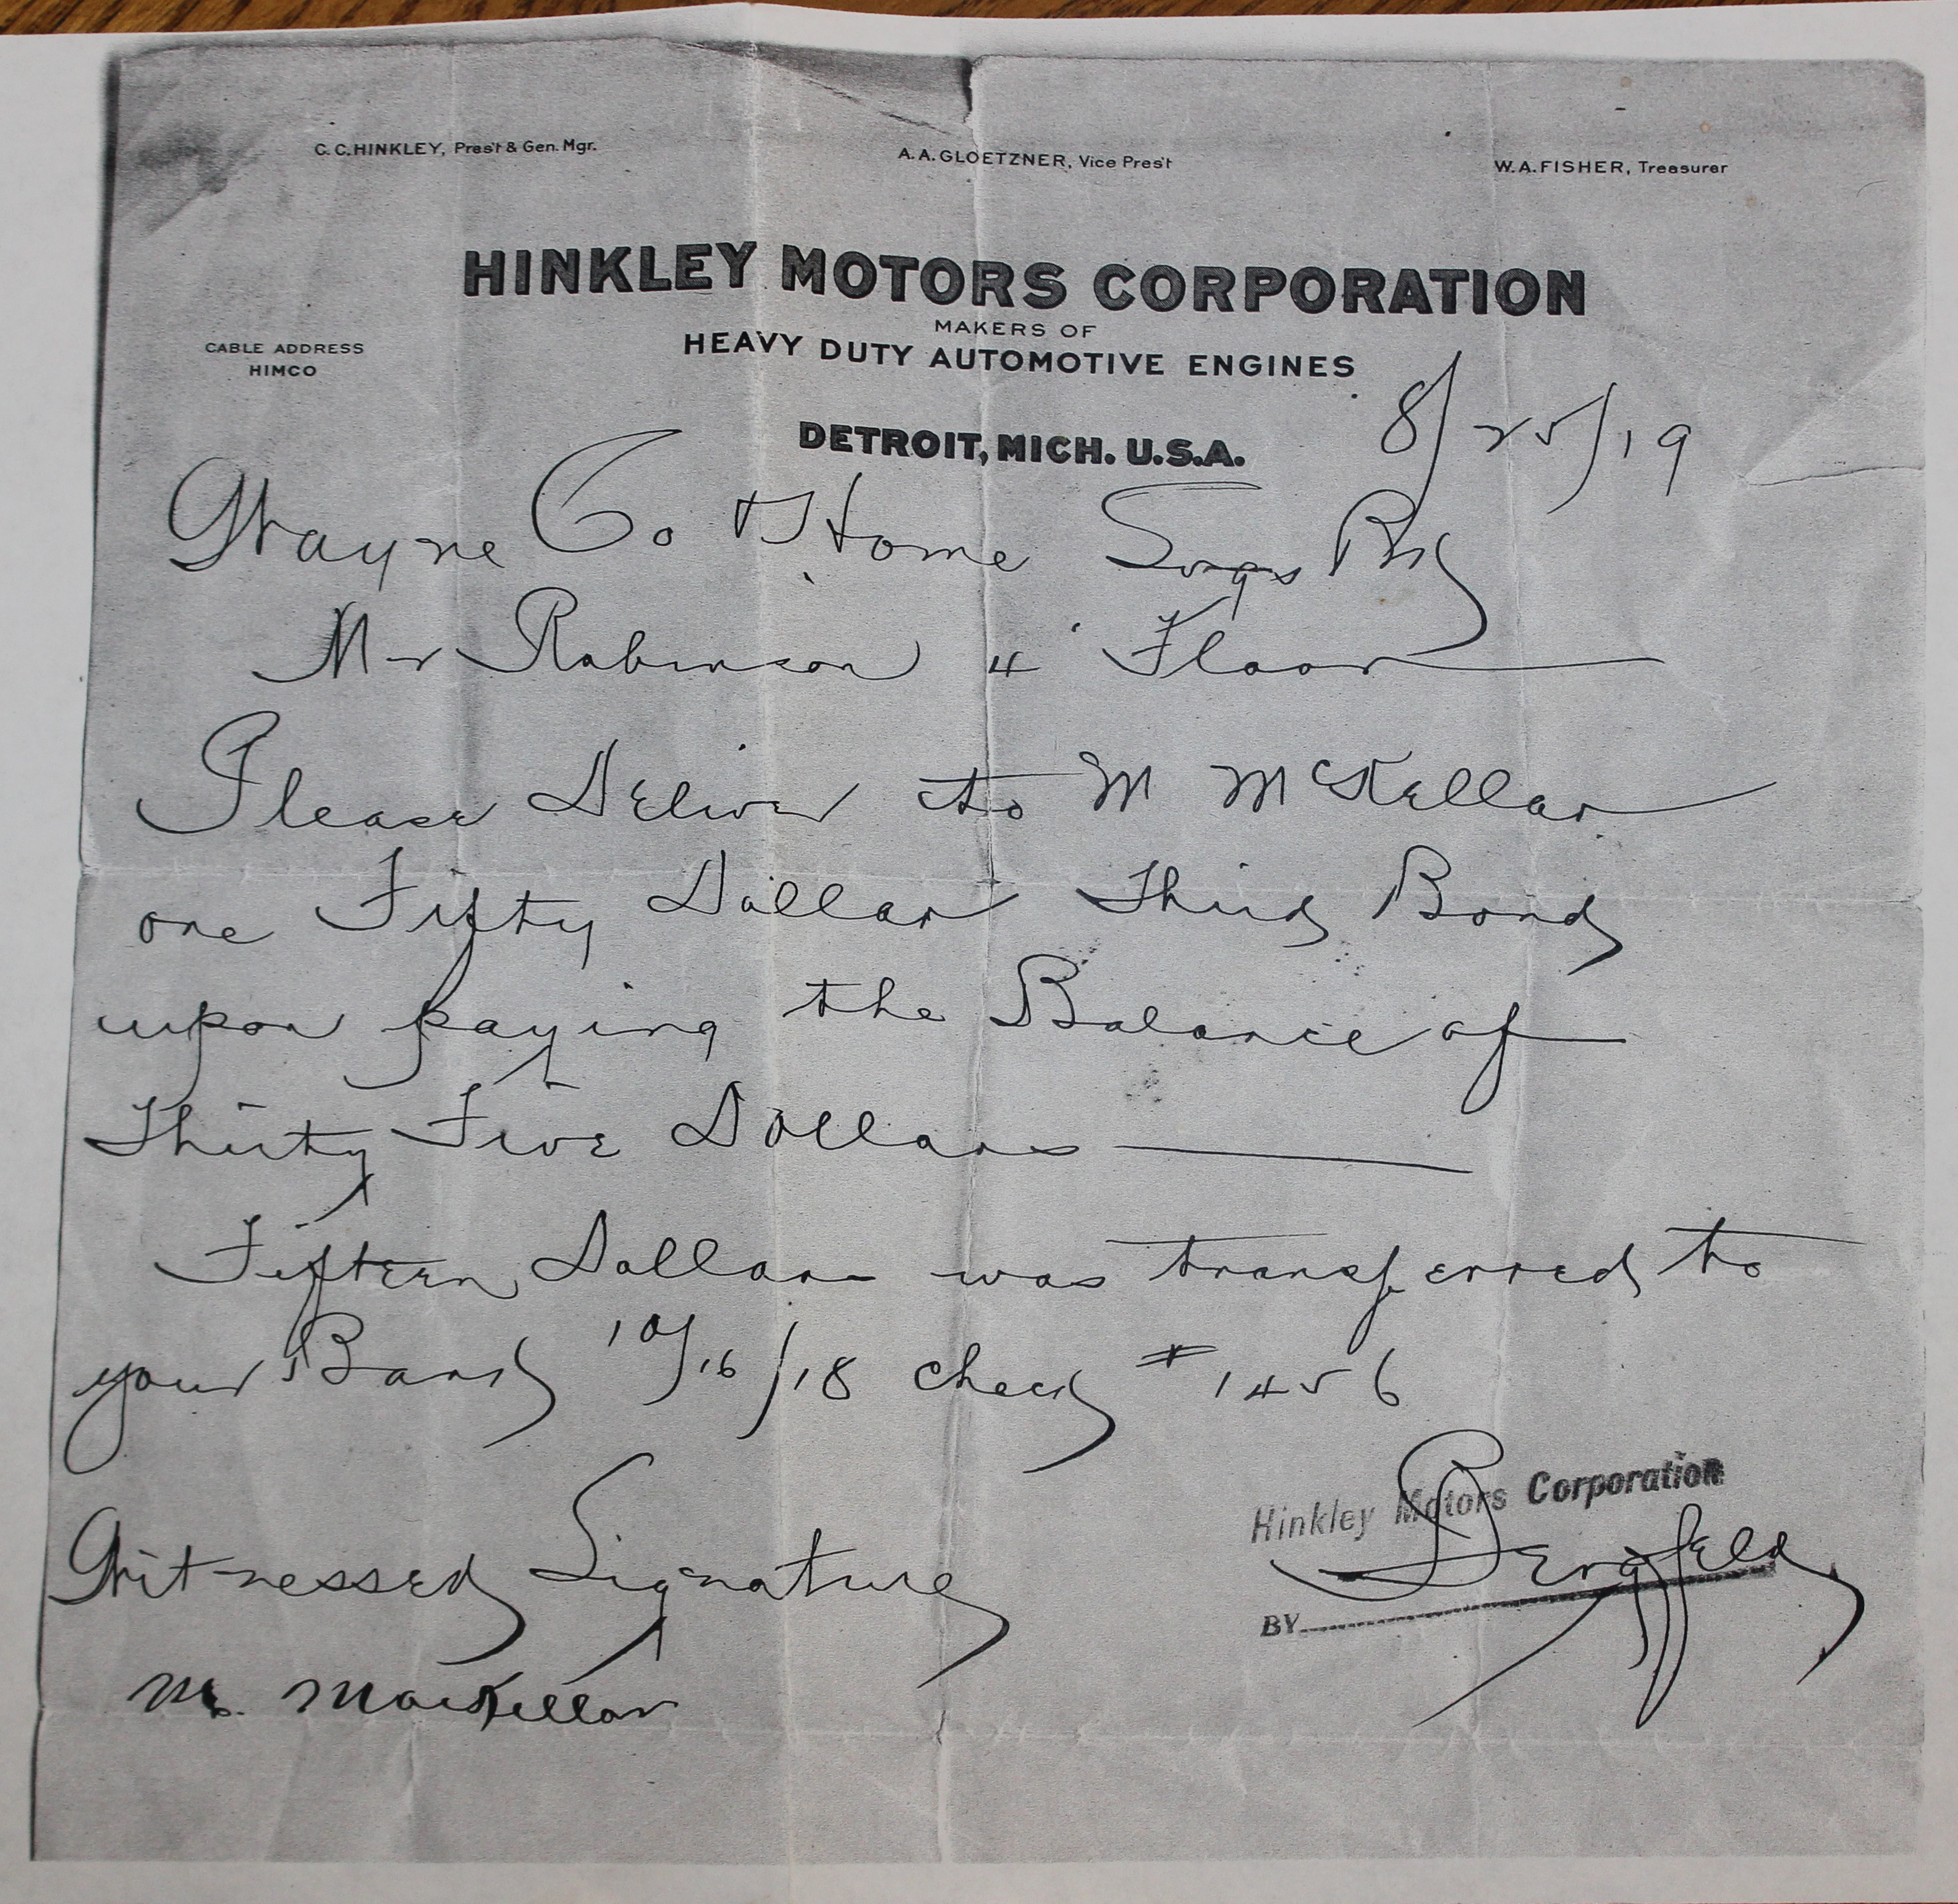 C.C. HINKLEY, Pres't & Gen. Mgr.
A.A. GLOETZNER, Vice Pres't
W.A. FISHER, Treasurer
HINKLEY MOTORS CORPORATION
MAKERS OF
HEAVY DUTY AUTOMOTIVE ENGINES
CABLE ADDRESS
HIMCO
DETROIT, MICH. U.S.A.
8/25/19
Wayne Co & Home Svgs Bk
Mr Robinson 4 Floor
Please Deliver to M McKellar
one Fifty Dollar Third Bond
upon paying the Balance of
Thirty Five Dollars
Fifteen Dollars was transferred to
your Bank 10/16/18 check # 1456
Hinkley Motors Corporation
Witnessed Signature
BY Bergfeld
M. MacKellar